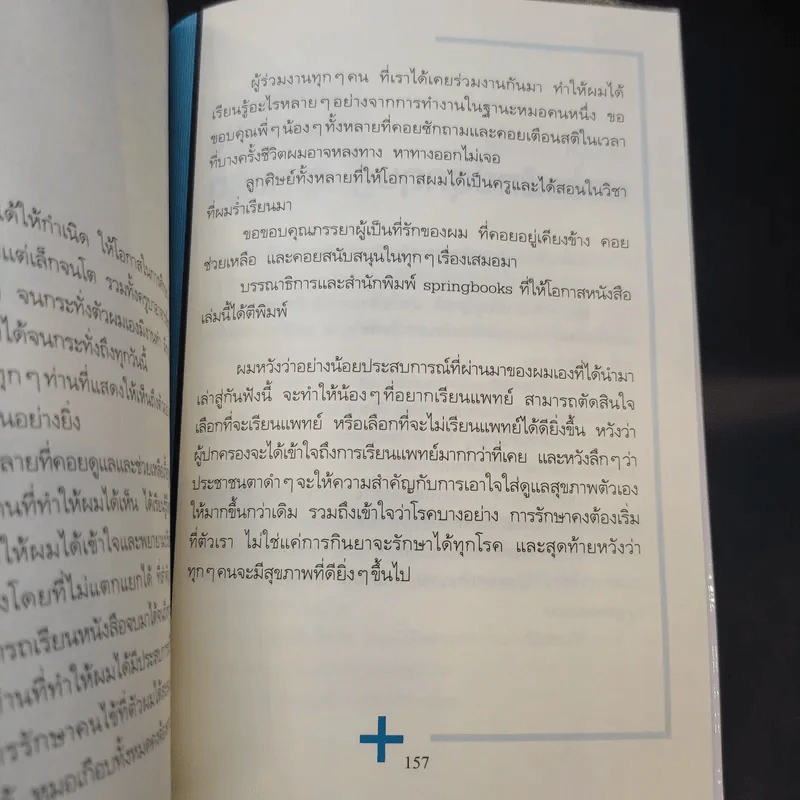 ด้ให้กำเนิด ให้โอกาสในการ
แต่เล็กจนโต รวมทั้ง
จนกระทั่งตัวผมเอง
ได้จนกระทั่งถึงทุกวันนี้
ทุกๆท่านที่แสดงให้เห็นถึง
นอย่างยิ่ง
ลายที่คอยดูแลและช่วยเหลือ
ท่านที่ทำให้ผมได้เห็น ได้เรียนรู้
ให้ผมได้เข้าใจและพยายาม
งโดยที่ไม่แตกแยกได้
ารถเรียนหนังสือจบมาได้
ท่านที่ทำให้ผมได้มีประสบการณ์
ารรักษาคนไข้ที่ตัวผมได้
หมอเกือบทั้งหมด
ผู้ร่วมงานทุกๆคน ที่เราได้เคยร่วมงานกันมา ทำให้ผมได้
เรียนรู้อะไรหลายๆอย่างจากการทำงานในฐานะหมอคนหนึ่ง ขอ
ขอบคุณพี่ๆน้องๆทั้งหลายที่คอยซักถามและคอยเตือนสติในเวลา
ที่บางครั้งชีวิตผมอาจหลงทาง หาทางออกไม่เจอ
ลูกศิษย์ทั้งหลายที่ให้โอกาสผมได้เป็นครูและได้สอนในวิชา
ที่ผมร่ำเรียนมา
ขอขอบคุณภรรยาผู้เป็นที่รักของผม ที่คอยอยู่เคียงข้าง คอย
ช่วยเหลือ และคอยสนับสนุนในทุกๆเรื่องเสมอมา
บรรณาธิการและสำนักพิมพ์ springbooks ที่ให้โอกาสหนังสือ
เล่มนี้ได้ตีพิมพ์
ผมหวังว่าอย่างน้อยประสบการณ์ที่ผ่านมาของผมเองที่ได้นำมา
เล่าสู่กันฟังนี้ จะทำให้น้องๆที่อยากเรียนแพทย์ สามารถตัดสินใจ
เลือกที่จะเรียนแพทย์ หรือเลือกที่จะไม่เรียนแพทย์ได้ดียิ่งขึ้น หวังว่า
ผู้ปกครองจะได้เข้าใจถึงการเรียนแพทย์มากกว่าที่เคย และหวังลึกๆว่า
ประชาชนตาดำๆจะให้ความสำคัญกับการเอาใจใส่ดูแลสุขภาพตัวเอง
ให้มากขึ้นกว่าเดิม รวมถึงเข้าใจว่าโรคบางอย่าง การรักษาคงต้องเริ่ม
ที่ตัวเรา ไม่ใช่แค่การกินยาจะรักษาได้ทุกโรค และสุดท้ายหวังว่า
ทุกๆคนจะมีสุขภาพที่ดียิ่งๆขึ้นไป
157